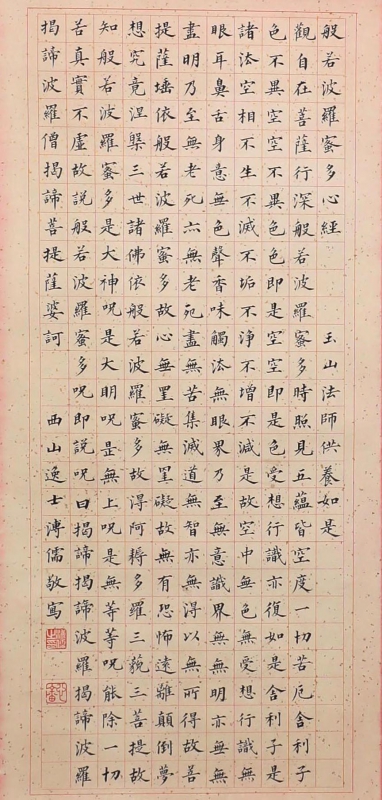 般若波羅蜜多心經 玉山法師供養如是
觀自在菩薩行深般若波羅蜜多時照見五蘊皆空度一切苦厄舍利子
色不異空空不異色色即是空空即是色受想行識亦復如是舍利子是
諸法空相不生不滅不垢不淨不增不減是故空中無色無受想行識無
眼耳鼻舌身意無色聲香味觸法無眼界乃至無意識界無無明亦無無
盡明乃至無老死亦無老死盡無苦集滅道無智亦無得以無所得故菩
提薩埵依般若波羅蜜多故心無罣礙無罣礙故無有恐怖遠離顛倒夢
想究竟涅槃三世諸佛依般若波羅蜜多故得阿耨多羅三藐三菩提故
知般若波羅蜜多是大神呪是大明呪是無上呪是無等等呪能除一切
苦真實不虛故說般若波羅蜜多呪即說呪曰揭諦揭諦波羅揭諦波羅
揭諦波羅僧揭諦菩提薩婆訶 西山逸士溥儒敬寫